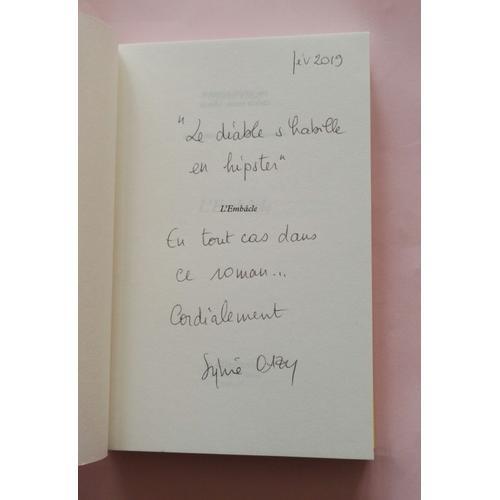 fév 2019
"Le diable s'habille
en hipster"
L'Embâcle
En tout cas dans
ce roman...
Cordialement
Sylvie Dazy